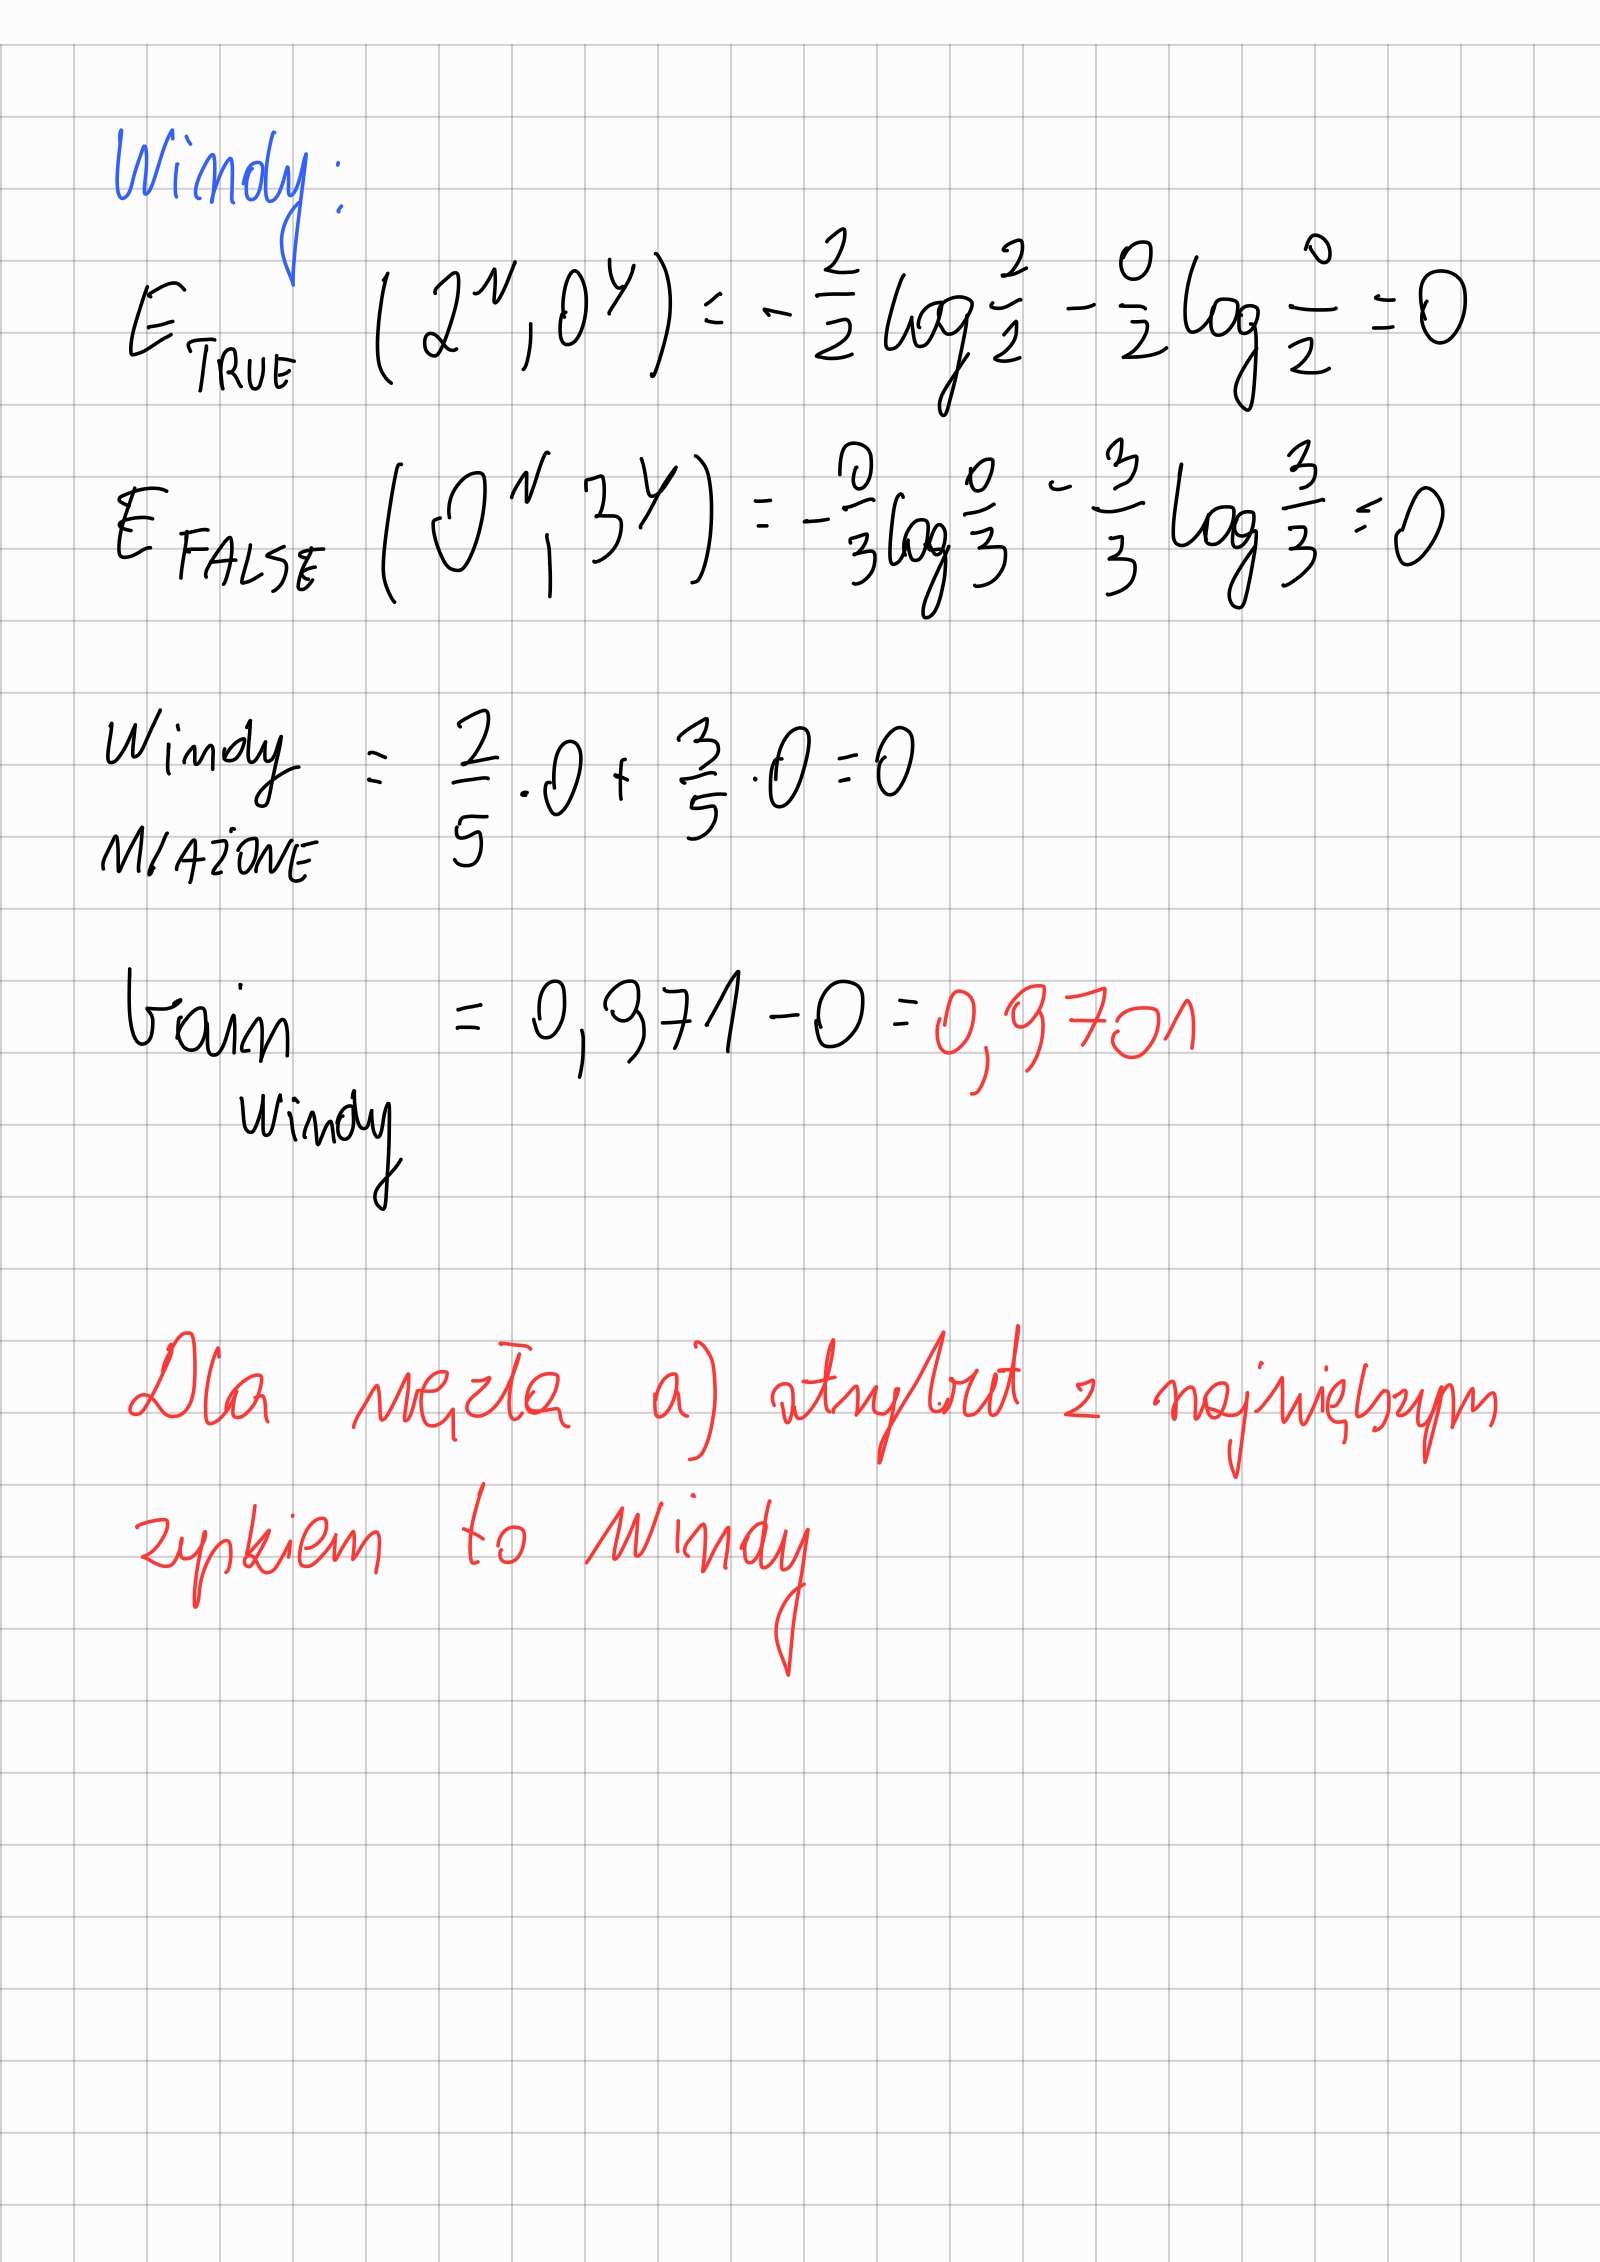 Windy:
E TRUE (2^N, 0^Y) = - 2/2 log 2/2 - 0/2 log 0/2 = 0
E FALSE (0^N, 3^Y) = - 0/3 log 0/3 - 3/3 log 3/3 = 0
Windy WAŻONE = 2/5 · 0 + 3/5 · 0 = 0
Gain Windy = 0,971 - 0 = 0,9701
Dla węzła a) atrybut z największym
zyskiem to Windy